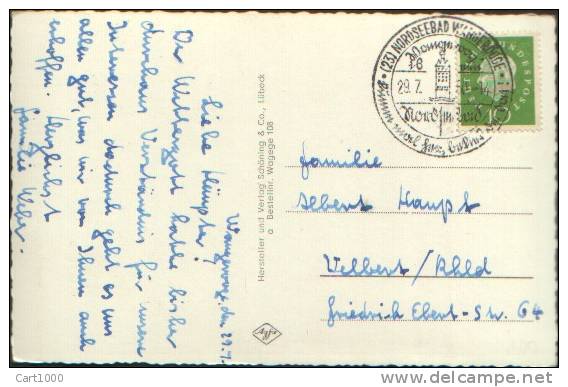 Wangerooge, den 29.7.
Liebe Haupts!
Der Wettergott hatte bisher
durchaus Verständnis für unsere
Interessen. Dadurch geht es uns
allen gut, was wir von Ihnen auch
erhoffen. Herzlichst
Familie
Hersteller und Verlag Schöning & Co., Lübeck
Bestellnr. Wagege 108
Agfa
(23) NORDSEEBAD WANGEROOGE
29.7.
Nordseebad
BUNDESPOST
Familie
Albert Haupt
Velbert/Rhld
Friedrich Ebert-Str. 64
Cart1000
delcampe.net